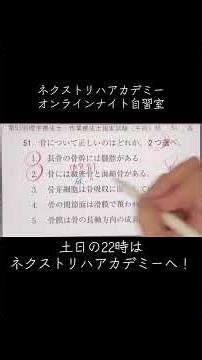 ネクストリハアカデミー
オンラインナイト自習室
51. 骨について正しいのはどれか。2つ選べ。
1. 長骨の骨幹には髄腔がある。
2. 骨には緻密骨と海綿骨がある。
3. 骨芽細胞は骨吸収に
4. 骨の関節面は滑膜で覆われ
5. 骨膜は骨の長軸方向の成長
土日の22時は
ネクストリハアカデミーへ！